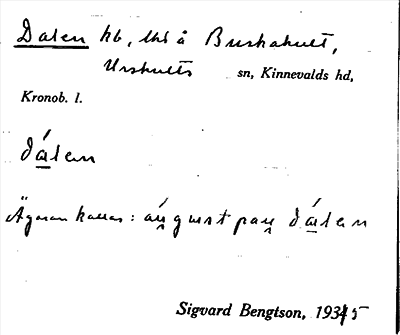 Dalen hb, lht å Buskahult,
Urshults sn, Kinnevalds hd,
Kronob. l.
dálen
Ägaren kallas: áugust pau dálen
Sigvard Bengtson, 1935